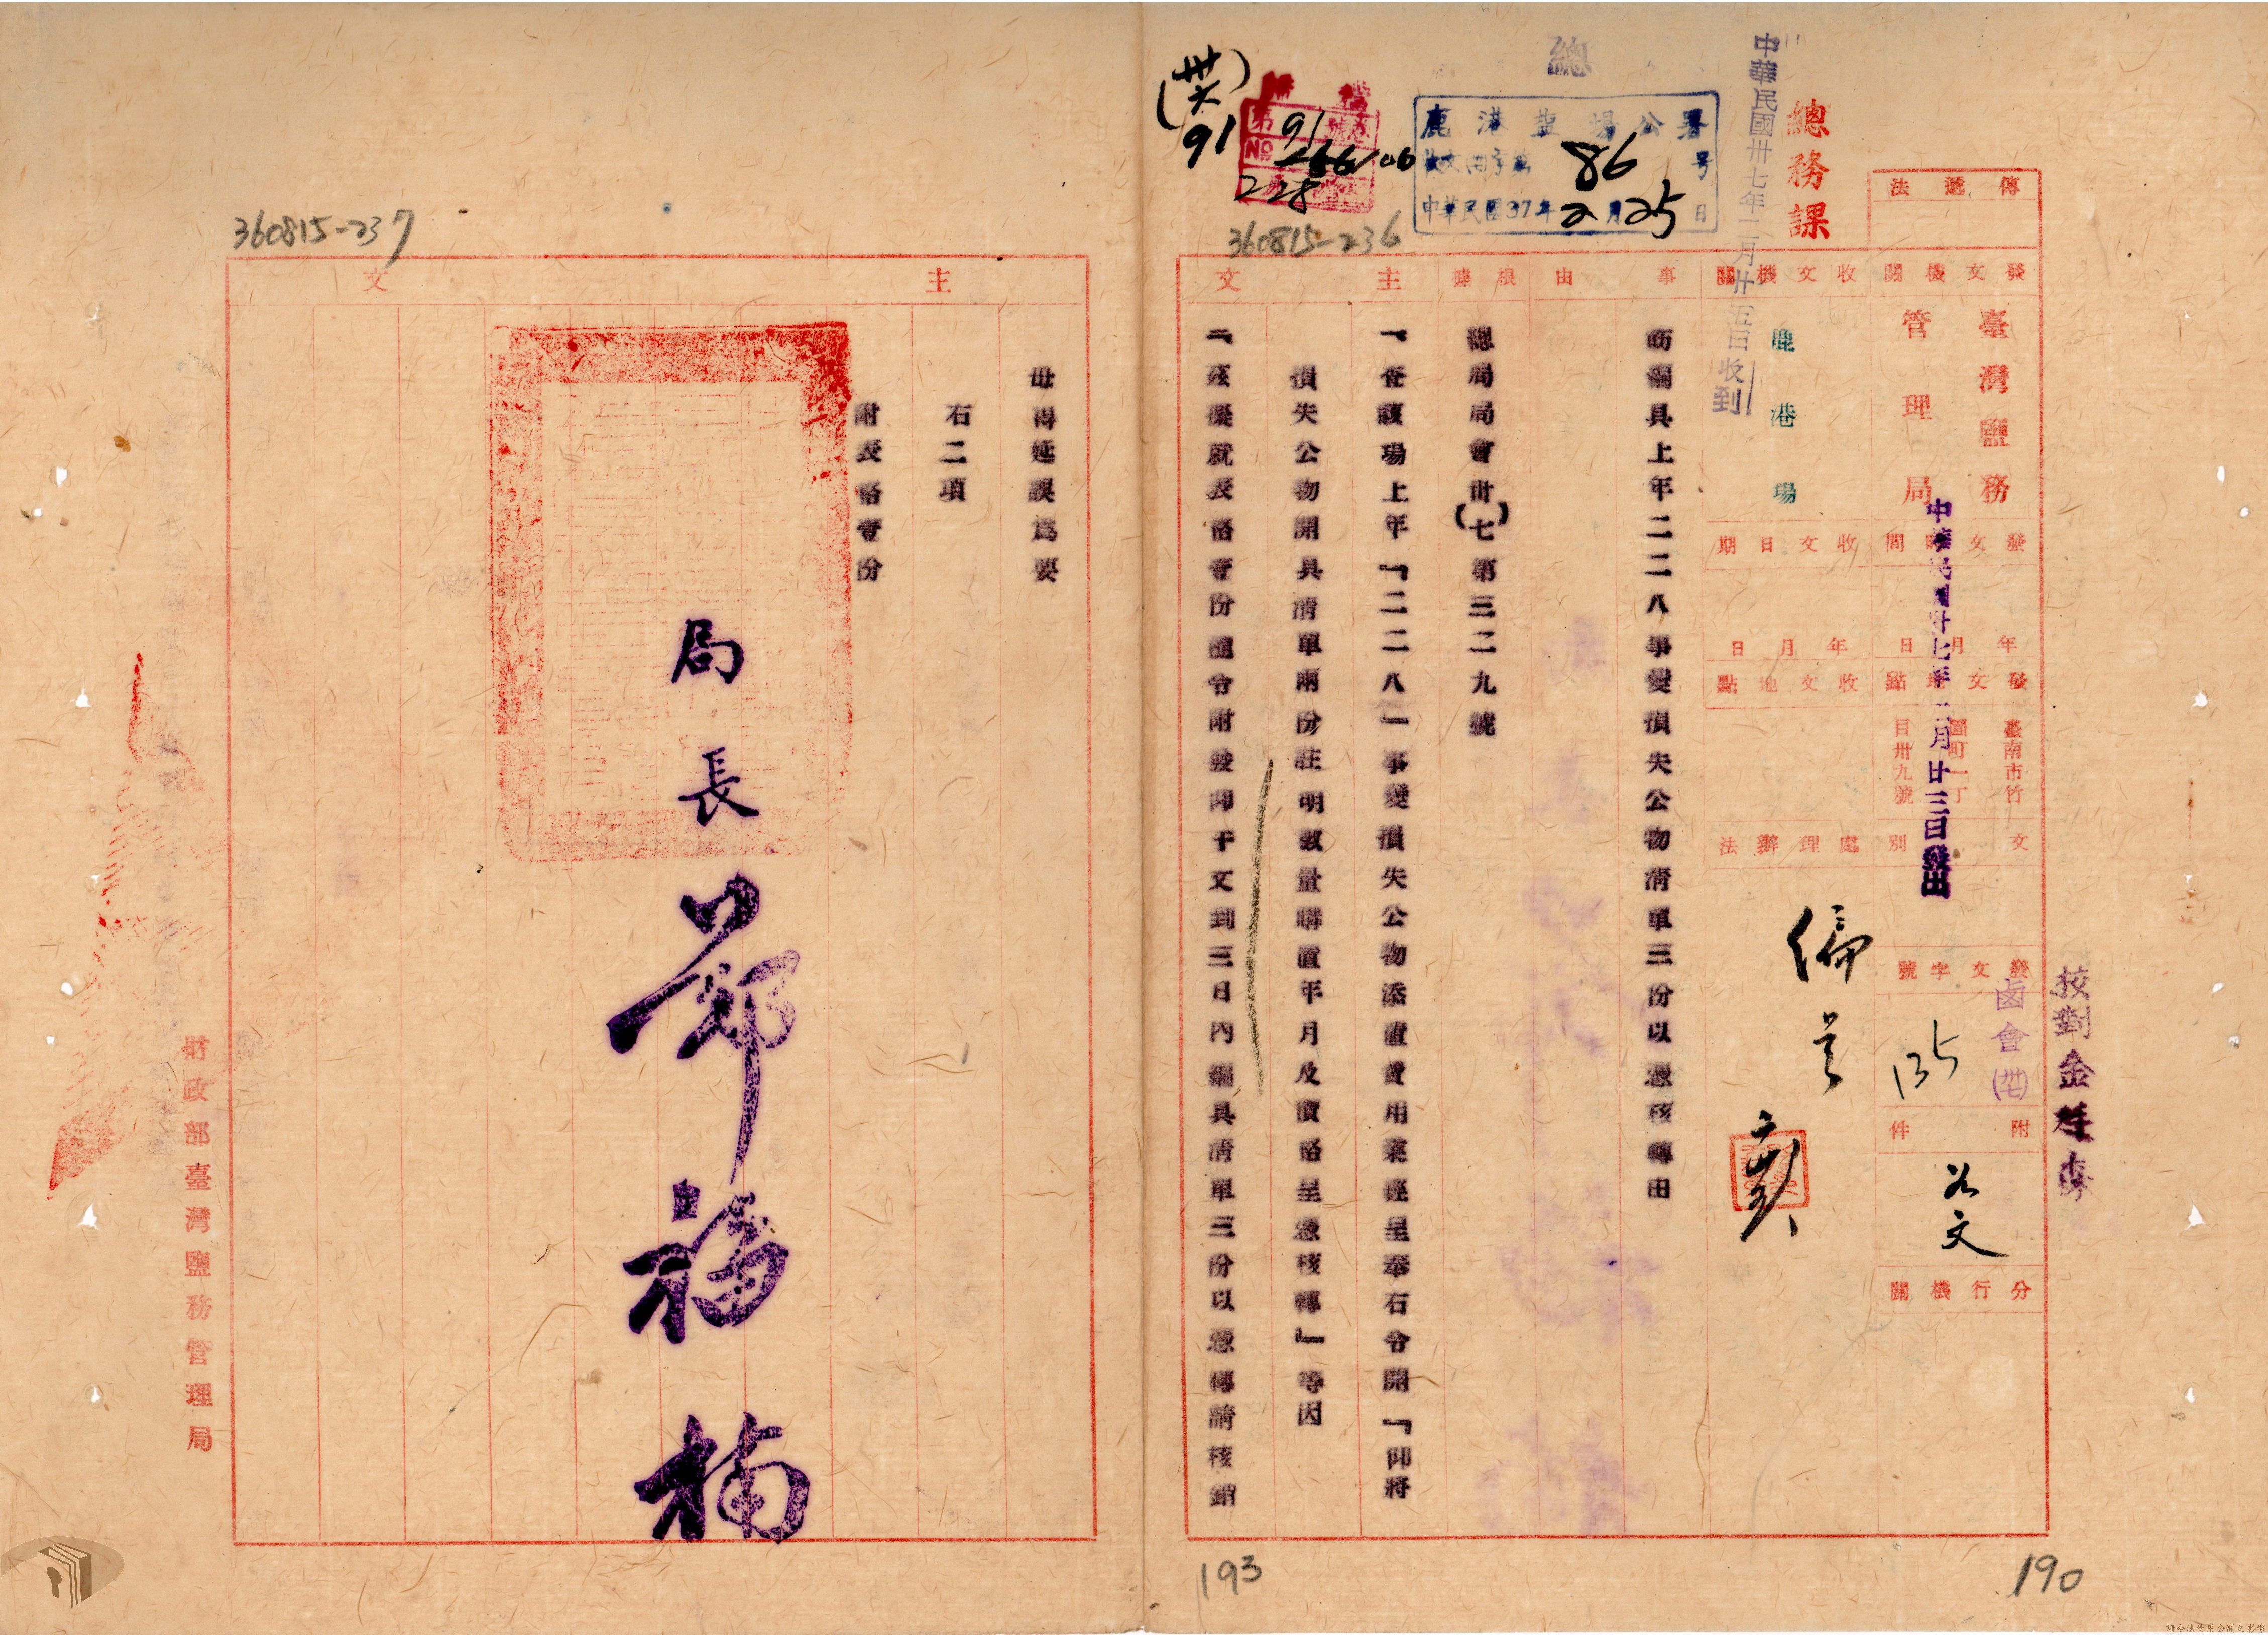 總
中華民國卅七年二月廿五日收到
總務課
傳遞法
(卅六)
91
91
228
鹿港鹽場公署
收文 字第86号
中華民國37年2月25日
360815-236
發文機關
臺灣鹽務
管理局
收文機關
鹿港場
發文時間
年月日
中華民國卅七年二月廿三日發出
收文日期
年月日
發文地點
臺南市竹
園町一丁
目卅九號
收文地點
文別
處理辦法
發文字號
鹵會(卅七)
135
附件
如文
分行機關
校對金
事由
飭編具上年二二八事變損失公物清單三份以憑核轉由
根據
總局局會卅(七)第三二九號
主文
一、查該場上年『二二八』事變損失公物添置費用業經呈奉右令開『仰將
損失公物開具清單兩份註明數量購置年月及價格呈憑核轉』等因
二、茲擬就表格壹份隨令附發仰于文到三日內編具清單三份以憑轉請核銷
193
190
360815-237
主文
毋得延誤為要
右二項
附表格壹份
局長 鄒福楠
財政部臺灣鹽務管理局